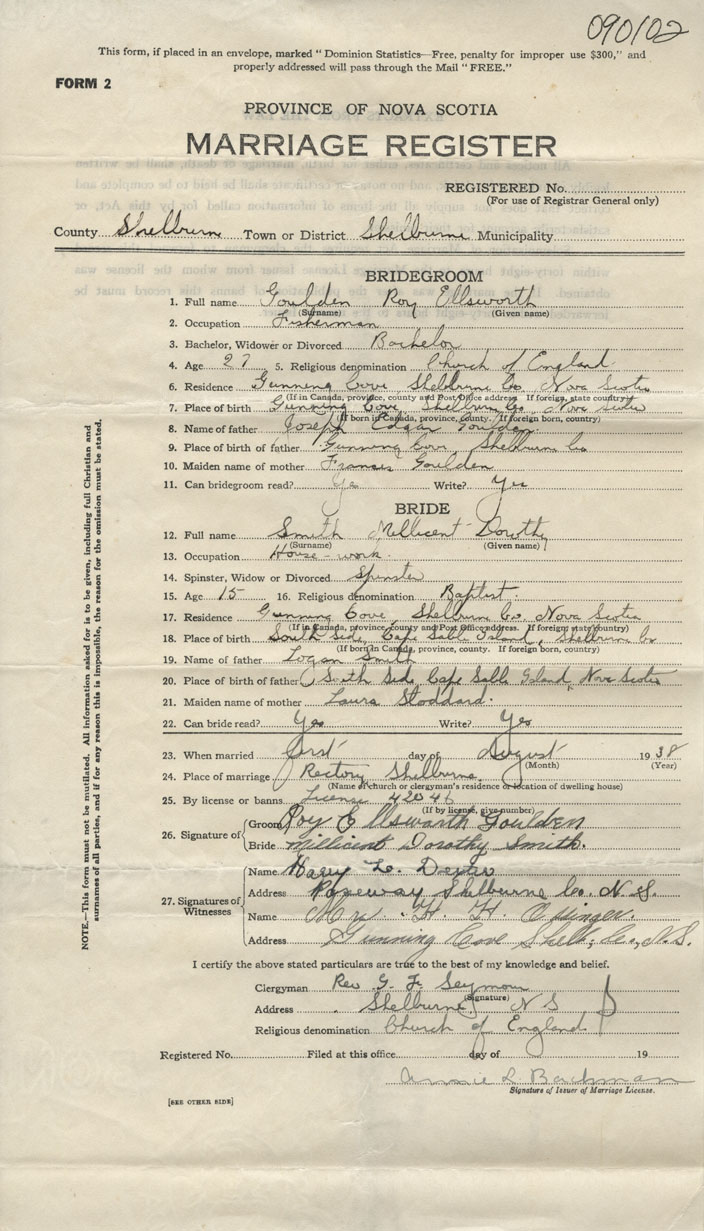 090102
This form, if placed in an envelope, marked "Dominion Statistics—Free, penalty for improper use $300," and
properly addressed will pass through the Mail "FREE."
FORM 2
PROVINCE OF NOVA SCOTIA
MARRIAGE REGISTER
REGISTERED No.
(For use of Registrar General only)
County Shelburne Town or District Shelburne Municipality
BRIDEGROOM
1. Full name Goulden Roy Ellsworth
(Surname) (Given name)
2. Occupation Fisherman
3. Bachelor, Widower or Divorced Bachelor
4. Age 27 5. Religious denomination Church of England
6. Residence Gunning Cove Shelburne Co Nova Scotia
(If in Canada, province, county and Post Office address. If foreign, state country)
7. Place of birth Gunning Cove Shelburne Co, Nova Scotia
(If born in Canada, province, county. If foreign born, country)
8. Name of father Joseph Edgar Goulden
9. Place of birth of father Gunning Cove Shelburne Co
10. Maiden name of mother Frances Goulden
11. Can bridegroom read? Yes Write? Yes
BRIDE
12. Full name Smith Millicent Dorothy
(Surname) (Given name)
13. Occupation House-work.
14. Spinster, Widow or Divorced Spinster
15. Age 15 16. Religious denomination Baptist.
17. Residence Gunning Cove, Shelburne Co, Nova Scotia
(If in Canada, province, county and Post Office address. If foreign state country)
18. Place of birth South Side, Cape Sable Island, Shelburne Co
(If born in Canada, province, county. If foreign born, country)
19. Name of father Logan Smith
20. Place of birth of father South Side, Cape Sable Island, Nova Scotia
21. Maiden name of mother Laura Stoddard.
22. Can bride read? Yes Write? Yes
23. When married first day of August 1938
(Month) (Year)
24. Place of marriage Rectory Shelburne.
(Name of church or clergyman's residence or location of dwelling house)
25. By license or banns License 42046
(If by license, give number)
26. Signature of
Groom Roy Ellsworth Goulden
Bride Millicent Dorothy Smith.
27. Signatures of Witnesses
Name Harry L. Dexter
Address Roseway Shelburne Co. N.S.
Name Mrs. H. H.
Address Gunning Cove Shelb. Co., N.S.
I certify the above stated particulars are true to the best of my knowledge and belief.
Clergyman Rev G. F. Seymour
(Signature)
Address Shelburne N S
Religious denomination Church of England
Registered No. Filed at this office day of 19
Annie L. Bachman
Signature of Issuer of Marriage License.
[SEE OTHER SIDE]
NOTE.—This form must not be mutilated. All information asked for is to be given, including full Christian and
surnames of all parties, and if for any reason this is impossible, the reason for the omission must be stated.